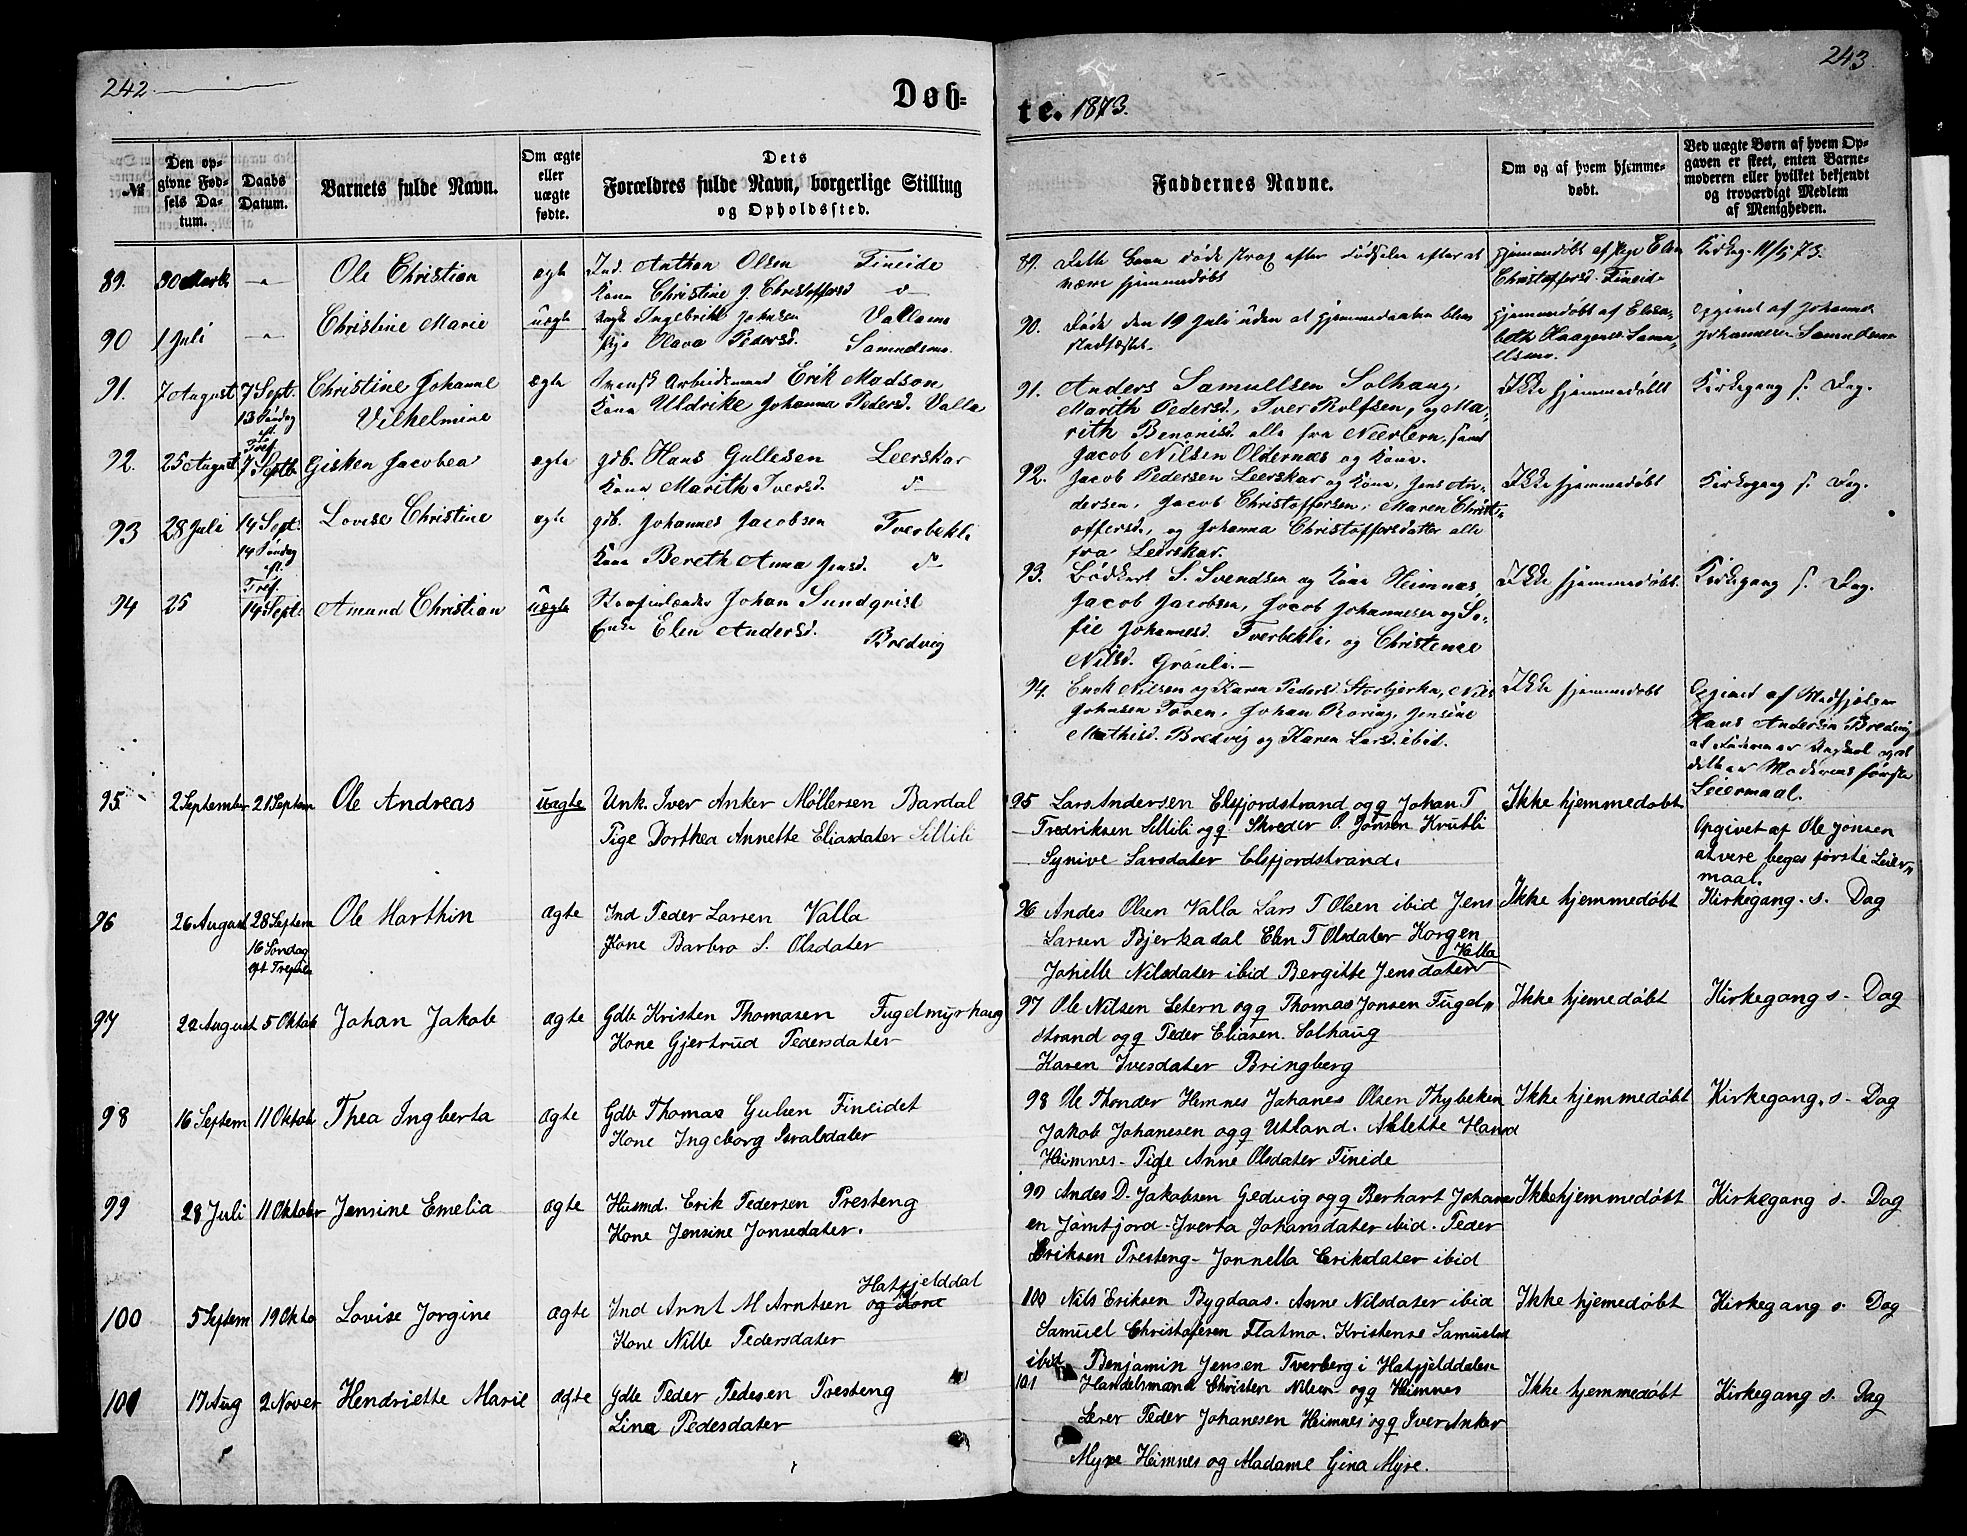 242
Døb-
№
Den op-
givne Fød-
sels Da-
tum.
Daabs
Datum.
Barnets fulde Navn.
Om ægte
eller
uægte
fødte.
Dets
Forældres fulde Navn, borgerlige Stilling
og Opholdssted.
89. 30 Marts -"- Ole Christian ægte Ind. Anthon Olsen Fineide
Kone Christine J. Christoffersd d-
90 1 Juli -"- Christine Marie uægte Ingebrikt Johnsen Vallamo
Pige Olava Pedersd. Samuelsmo.
91. 7 August 7 Sept. Christine Johanne ægte Svensk Arbeidsmand Erik Madson
13 Søndag Vilhelmine Kone Uldrike Johanna Pedersd. Valla
eft.
Tref.
92. 25 August 7 Septb. Gisken Jacobea ægte gdb. Hans Gullesen Leerskar
Kone Marith Iversd. d-
93 28 Juli 14 Sept. Lovise Christine ægte gdb. Johannes Jacobsen Tverbekli
14 Søndag
eft. Kone Bereth Anna Jensd. d-
Tref.
94 25 14 Sept. Amand Christian uægte Johan Sundqvist
Enke Elen Andersd.
Bredvig
95. 2 September 21 Septem Ole Andreas uægte Unk. Iver Anker Møllersen Bardal
Pige Dorthea Annette Eliasdater Sillili
96 26 August 28 Septem Ole Marthin ægte Ind Peder Larsen Valla
16 Søndag Kone Barbro S. Olsdater
eft Trefoin
97 22 August 5 Oktob Johan Jakob ægte Gdb Kristen Thomasen Fugelmyrhaug
Kone Gjertrud Pedersdater
98 16 Septem 11 Oktob Thea Ingberta ægte Gdb Thomas Gulsen Fineidet
Kone Ingeborg Isralsdater
99 28 Juli 11 Oktober Jensine Emelia ægte Husmd. Erik Pedersen Presteng
Kone Jensine Jonsedater.
Hatfjelddal
100 5 Septem 19 Okto Lovise Jorgine ægte Ind Arnt M Arntsen og Kone
Kone Nille Pedersdater
101 17 Aug 2 Nover Hendriette Marie ægte Gdb Peder Pedesen Presteng
Lina Pedesdater
243
te. 1873.
Faddernes Navne.
Om og af hvem hjemme-
døbt.
Ved uægte Børn af hvem Op-
gaven er skeet, enten Barne-
moderen eller hvilket bekjendt
og troværdigt Medlem
af Menigheden.
89. Dette Barn døde strax efter Fødselen efter at hjemmedøbt af Pige Elen Kirkeg. 11/5 73.
være hjemmedøbt Christoffersd. Fineide
90. Døde den 19 Juli uden at hjemmedaaben blev hjemmedøbt af Elisa- Opgivet af Johannes
stadfæstet. beth Haagense Samu- Johannesen Samuelsmo
elsmo.
91. Anders Samuelsen Solhaug, Ikke hjemmedøbt Kirkegang s. Dag.
Marith Pedersd., Iver Rolfsen, og Ma-
rith Benonisd. alle fra Neerlern, samt
Jacob Nilsen Oldernæs og Kone.
92. Jacob Pedersen Leerskar og Kone, Jens An- Ikke hjemmedøbt Kirkegang s. Dag.
dersen, Jacob Christoffersen, Maren Christ-
offersd., og Johanna Christoffersdatter alle
fra Leerskar.
93. S. Svendsen og Kone Heimnæs, Ikke hjemmedøbt. Kirkegang s. Dag.
Jacob Jacobsen, Jacob Johannesen og So-
fie Johannesd. Tverbekli, og Christense
Nilsd. Grauli.-
94. Enok Nilsen og Karen Pedersd. Storbjerka, Nils Ikke hjemmedøbt Opgivet af Medhjelper
Johnsen Toven, Johan Roring, Jensine Hans Andersen Bredvig
Mathisd. Bredvig og Karen Larsd. ibid. at Faderen er Ungkarl og at
dette er Moderens første
Leiermaal.
95 Lars Andersen Elsfjordstrand og q Johan P Ikke hjemmedøbt
Fredriksen Sillili og q Skreder O. Jonsen Krutli Opgivet af Ole Jonsen
Synive Larsdater Elsfjordstrand. at vere beges første Leier-
maal.
96 Andes Olsen Valla Lars P Olsen ibid Jens Ikke hjemmedøbt Kirkegang. s. Dag
Larsen Bjerkadal Elen P Olsdater Korgen
Valla
Jonelle Nilsdater ibid Bergitte Jensdater
97 Ole Nilsen Letern og q Thomas Jonsen Fugel- Ikke hjemedøbt Kirkegang s- Dag
strand og q Peder Eliasen. Solhaug
Karen Ivesdater Bringberg
98 Ole Thonder Hemnes Johanes Olsen Thybeken Ikke hjemmedøbt Kirkegang. s- Dag
Jakob Johanesen og q Utland. Allette Hansd
Heimnes- Pige Anne Olsdater Fineide
99 Andes D. Jakobsen Gedvig og q Berhart Johanes Ikke hjemmedøbt Kirkegang s- Dag
en Jamtfjord- Iverta Johansdater ibid. Peder
Eriksen Presteng- Jonnella Eriksdater ibid
100 Nils Eriksen Bygdaas. Anne Nilsdater ibid Ikke hjemedøbt Kirkegang s. Dag
Samuel Christofersen Flatmo. Kristense Samuelsd
ibid Benjamin Jensen Tverberg i Hatfjelddalen
101 Handelsmand Christen Nilsen og q Heimnes Ikke hjemmedøbt Kirkegang s. Dag
Lerer Peder Johanesen Heimnes og q Iver Anker
Myre Heimnes og Madame Gina Myre.